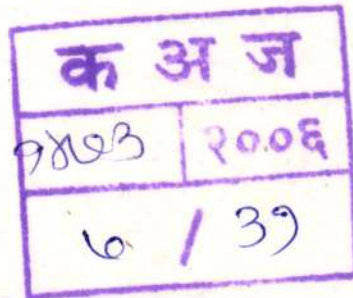 क अ ज
१४७३ २००६
७ / ३१